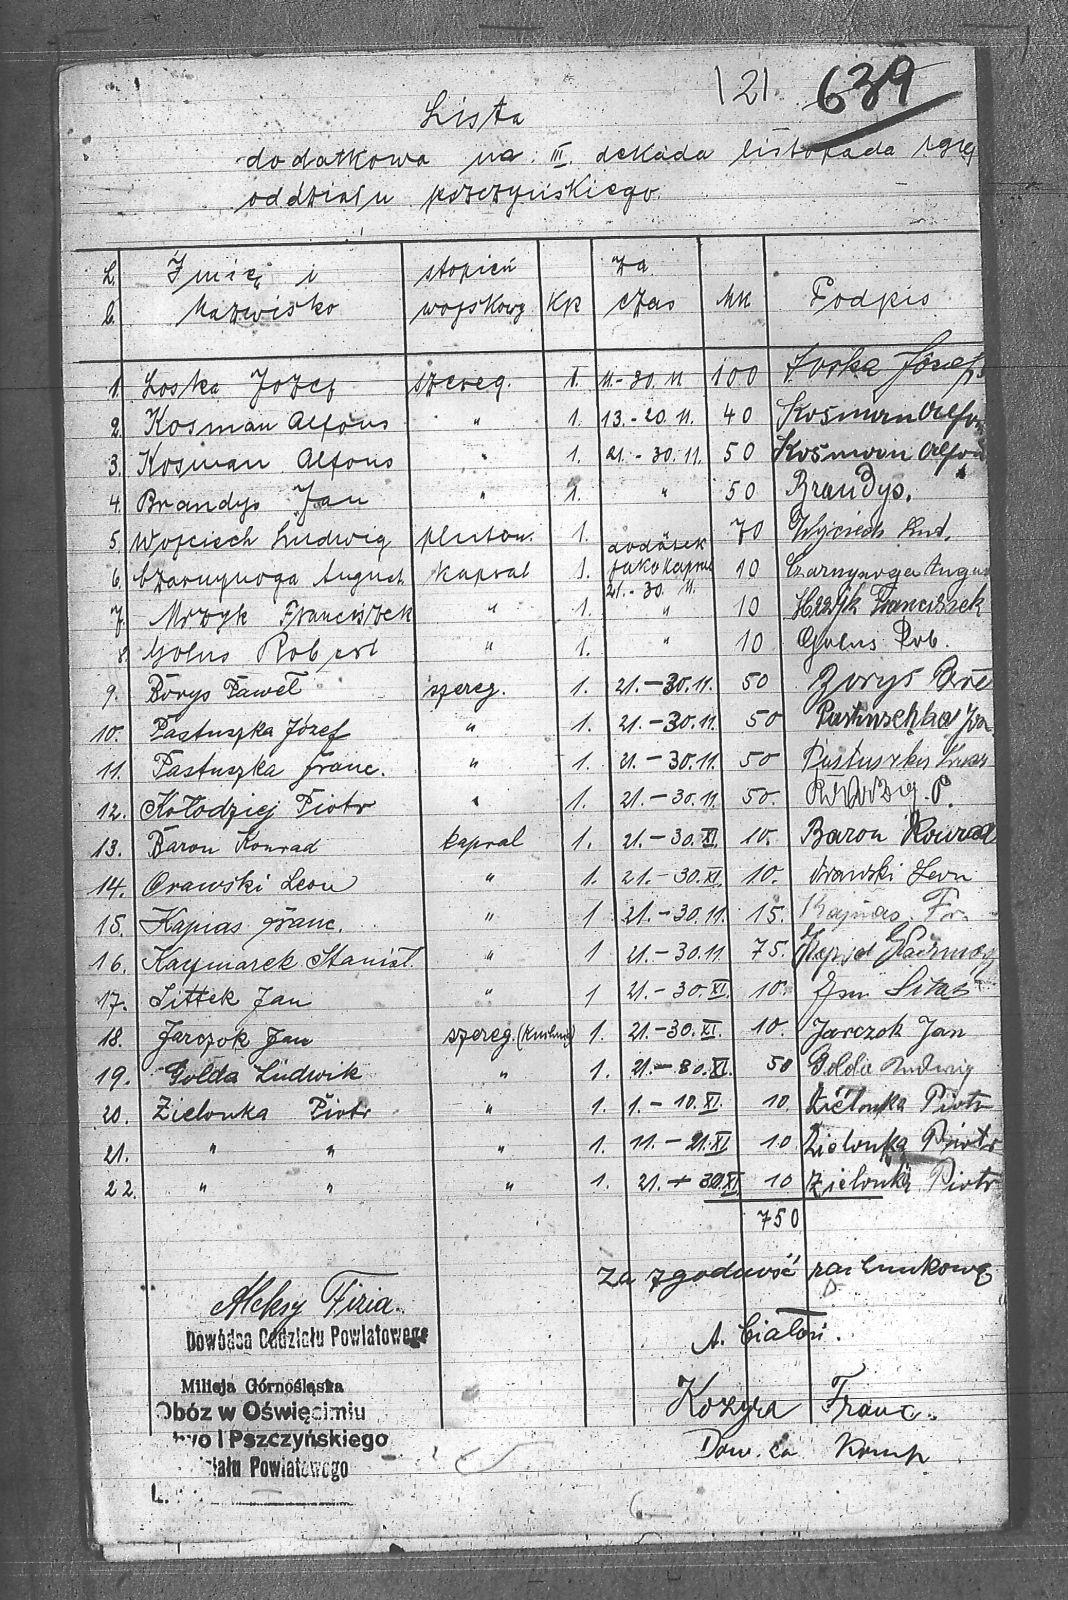 121. 639
Lista
dodatkowa na III dekada listopada
oddziału pszczyńskiego.
L. Imię i stopień za
l. Nazwisko wojskowy Kp czas Mk Podpis
1. Loska Jozef szereg. 1. 11.-30.11 100 Loska Józef
2. Kosman Alfons " 1. 13.-20.11. 40 Kosman Alfons
3. Kosman Alfons " 1. 21.-30.11. 50 Kosman Alfons
4. Brandys Jan " 1. " 50 Brandys.
5 Wojciech Ludwig pluton. 1. 70 Wojciech Lud.
dodatek
6. Czarnynoga August kapral 1. jako kapral 10 Czarnynoga Augus
21.-30.11.
7. Mrzyk Franciszek " 1. " 10 Mrzyk Franciszek
8. Golus Robert " 1. " 10 Golus Rob.
9. Borys Paweł szereg. 1. 21.-30.11. 50
10. Pastuszka Józef " 1. 21.-30.11. 50 Pastuschka
11. Pastuszka Franc. " 1. 21.-30.11. 50 Pastuszka
12. Kołodziej Piotr " 1. 21.-30.11. 50. P.
13. Baron Konrad kapral 1. 21.-30.XI. 10. Baron Konrad
14. Orawski Leon " 1. 21.-30.XI. 10. Orawski Leon
15. Kapias Franc. " 1 21.-30.11. 15. Kapias Fr.
16. Kaczmarek Stanisł. " 1 21.-30.11. 75.
17. Sittek Jan " 1 21.-30.XI. 10. Jan
18. Jarczok Jan szereg. (kuchnia) 1. 21.-30.XI. 10. Jarczok Jan
19. Golda Ludwik " 1. 21.-30.XI. 50 Golda Ludwig
20. Zielonka Piotr " 1. 1.-10.XI. 10. Zielonka Piotr
21. " " " 1. 11.-21.XI 10 Zielonka Piotr
22. " " " 1. 21.-30.XI. 10 Zielonka Piotr
750
Za zgodność rachunkową
Aleksy Fizia.
Dowódca Oddziału Powiatowego
A.
Milicja Górnośląska
Obóz w Oświęcimiu
Kozyra Franc.
I Pszczyńskiego
Dow. komp
Powiatowego
L.